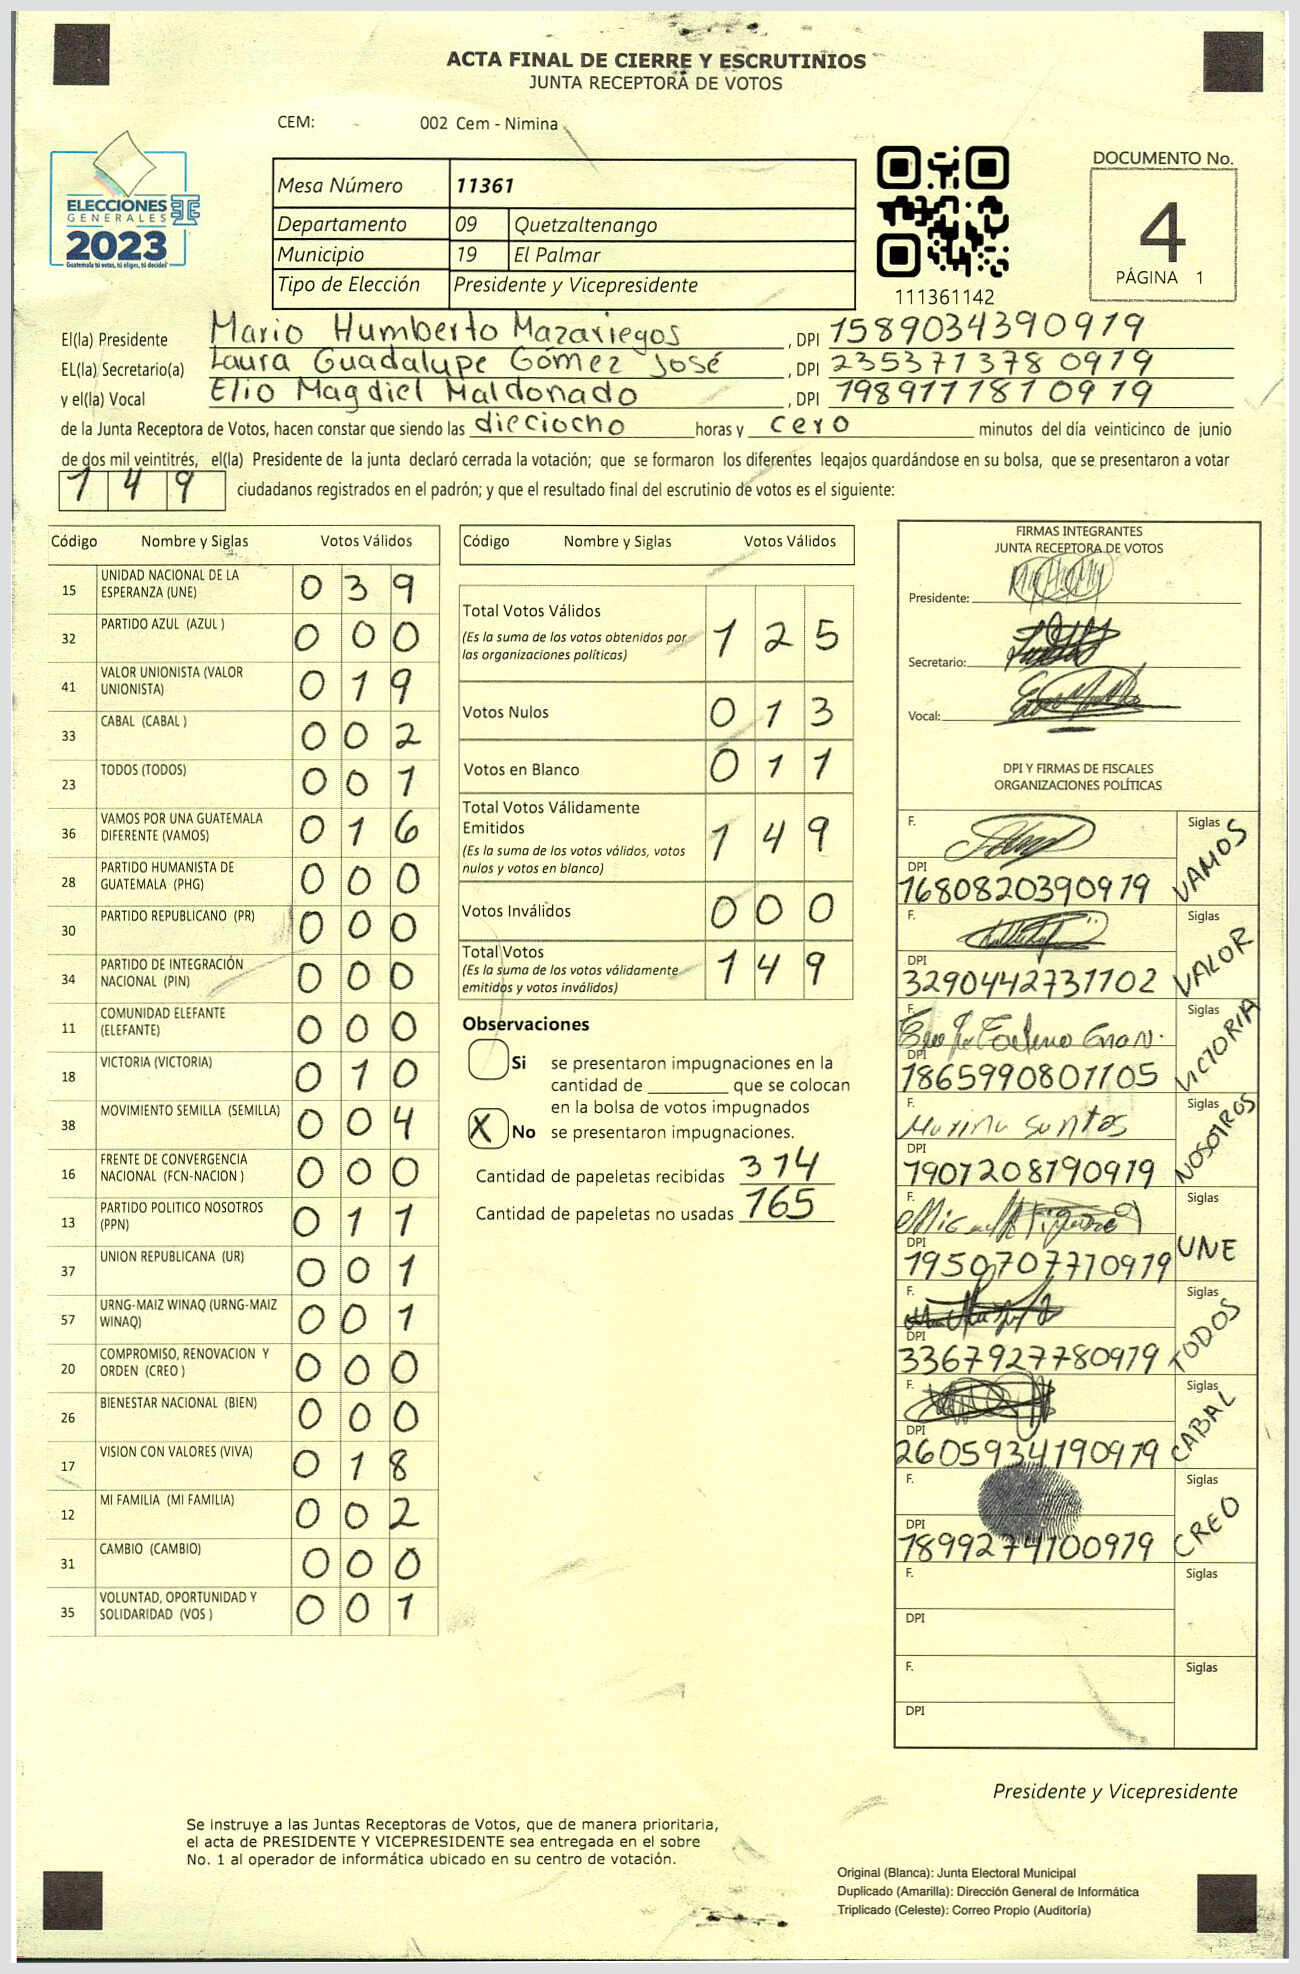 ACTA FINAL DE CIERRE Y ESCRUTINIOS
JUNTA RECEPTORA DE VOTOS
CEM: - 002 Cem - Nimina
ELECCIONES
GENERALES
2023
Guatemala tú votas, tú eliges, tú decides
Mesa Número 11361
Departamento 09 Quetzaltenango
Municipio 19 El Palmar
Tipo de Elección Presidente y Vicepresidente
111361142
DOCUMENTO No.
4
PÁGINA 1
El(la) Presidente Mario Humberto Mazariegos, DPI 1589034390919
EL(la) Secretario(a) Laura Guadalupe Gómez José, DPI 2353713780919
y el(la) Vocal Elio Magdiel Maldonado, DPI 1989117810919
de la Junta Receptora de Votos, hacen constar que siendo las dieciocho horas y cero minutos del día veinticinco de junio
de dos mil veintitrés, el(la) Presidente de la junta declaró cerrada la votación; que se formaron los diferentes legajos guardándose en su bolsa, que se presentaron a votar
149 ciudadanos registrados en el padrón; y que el resultado final del escrutinio de votos es el siguiente:
Código Nombre y Siglas Votos Válidos
15 UNIDAD NACIONAL DE LA ESPERANZA (UNE) 039
32 PARTIDO AZUL (AZUL ) 000
41 VALOR UNIONISTA (VALOR UNIONISTA) 019
33 CABAL (CABAL ) 002
23 TODOS (TODOS) 001
36 VAMOS POR UNA GUATEMALA DIFERENTE (VAMOS) 016
28 PARTIDO HUMANISTA DE GUATEMALA (PHG) 000
30 PARTIDO REPUBLICANO (PR) 000
34 PARTIDO DE INTEGRACIÓN NACIONAL (PIN) 000
11 COMUNIDAD ELEFANTE (ELEFANTE) 000
18 VICTORIA (VICTORIA) 010
38 MOVIMIENTO SEMILLA (SEMILLA) 004
16 FRENTE DE CONVERGENCIA NACIONAL (FCN-NACION ) 000
13 PARTIDO POLITICO NOSOTROS (PPN) 011
37 UNION REPUBLICANA (UR) 001
57 URNG-MAIZ WINAQ (URNG-MAIZ WINAQ) 001
20 COMPROMISO, RENOVACION Y ORDEN (CREO ) 000
26 BIENESTAR NACIONAL (BIEN) 000
17 VISION CON VALORES (VIVA) 018
12 MI FAMILIA (MI FAMILIA) 002
31 CAMBIO (CAMBIO) 000
35 VOLUNTAD, OPORTUNIDAD Y SOLIDARIDAD (VOS ) 001
Código Nombre y Siglas Votos Válidos
Total Votos Válidos 125
(Es la suma de los votos obtenidos por
las organizaciones políticas)
Votos Nulos 013
Votos en Blanco 011
Total Votos Válidamente
Emitidos 149
(Es la suma de los votos válidos, votos
nulos y votos en blanco)
Votos Inválidos 000
Total Votos 149
(Es la suma de los votos válidamente
emitidos y votos inválidos)
Observaciones
Si se presentaron impugnaciones en la
cantidad de ________ que se colocan
en la bolsa de votos impugnados
X No se presentaron impugnaciones.
Cantidad de papeletas recibidas 314
Cantidad de papeletas no usadas 165
FIRMAS INTEGRANTES
JUNTA RECEPTORA DE VOTOS
Presidente:
Secretario:
Vocal:
DPI Y FIRMAS DE FISCALES
ORGANIZACIONES POLÍTICAS
F. Siglas VAMOS
DPI 1680820390919
F. Siglas VALOR
DPI 3290442731102
F. Siglas VICTORIA
DPI 1865990801105
F. Marina Santos Siglas NOSOTROS
DPI 1901208190919
F. Siglas UNE
DPI 1950707710919
F. Siglas TODOS
DPI 3367927780919
F. Siglas CABAL
DPI 2605934190919
F. Siglas CREO
DPI 1899274100919
F. Siglas
DPI
F. Siglas
DPI
Presidente y Vicepresidente
Se instruye a las Juntas Receptoras de Votos, que de manera prioritaria,
el acta de PRESIDENTE Y VICEPRESIDENTE sea entregada en el sobre
No. 1 al operador de informática ubicado en su centro de votación.
Original (Blanca): Junta Electoral Municipal
Duplicado (Amarilla): Dirección General de Informática
Triplicado (Celeste): Correo Propio (Auditoría)